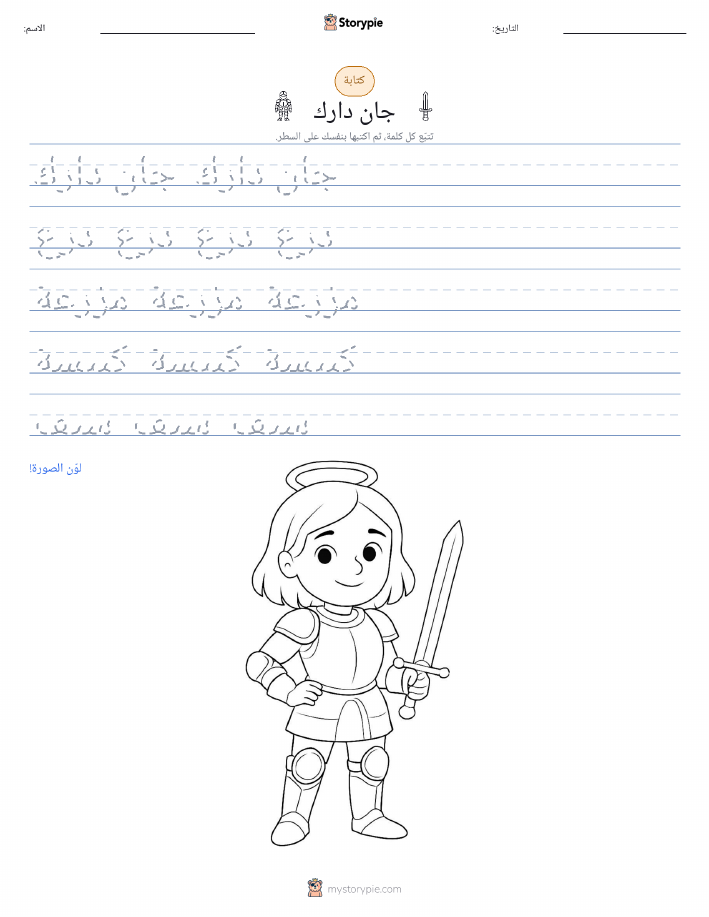 Storypie
الاسم:
التاريخ:
كتابة
جان دارك
تتبّع كل كلمة، ثم اكتبها بنفسك على السطر.
جان دارك جان دارك
درع درع درع درع
مزرعة مزرعة مزرعة
كنيسة كنيسة كنيسة
سيف سيف سيف
لوّن الصورة!
mystorypie.com